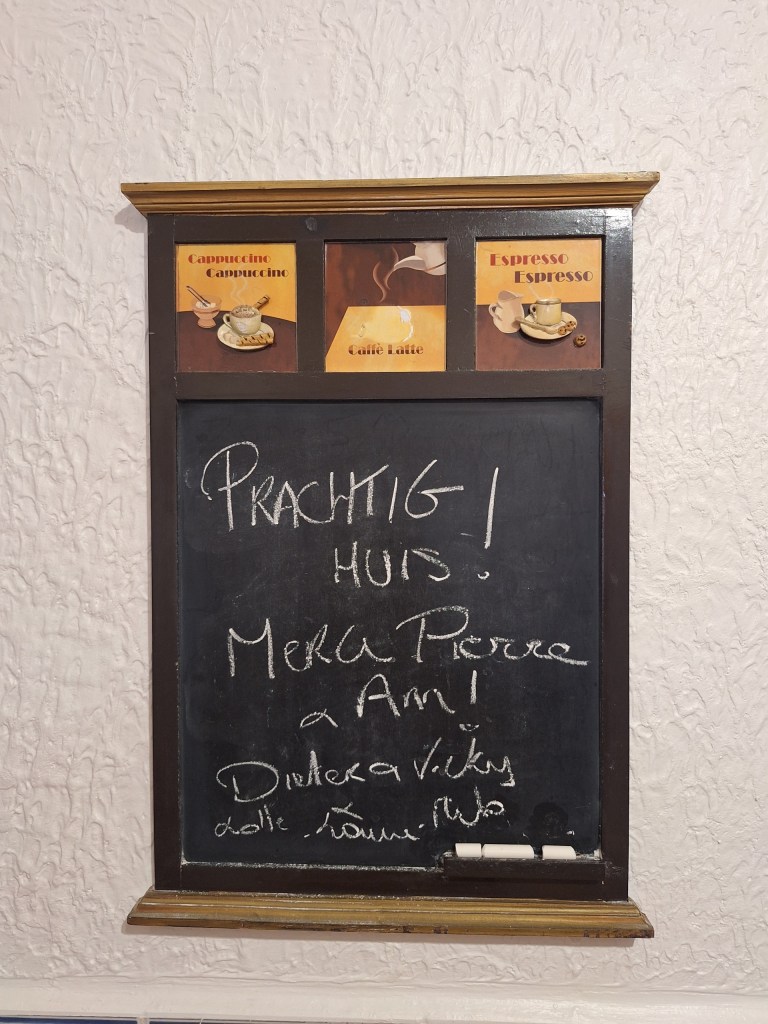 Cappuccino
Cappuccino
Caffè Latte
Espresso
Espresso
PRACHTIG!
HUIS!
MERCI Pierre
& Ann!
Dieter & Vicky
Lotte -